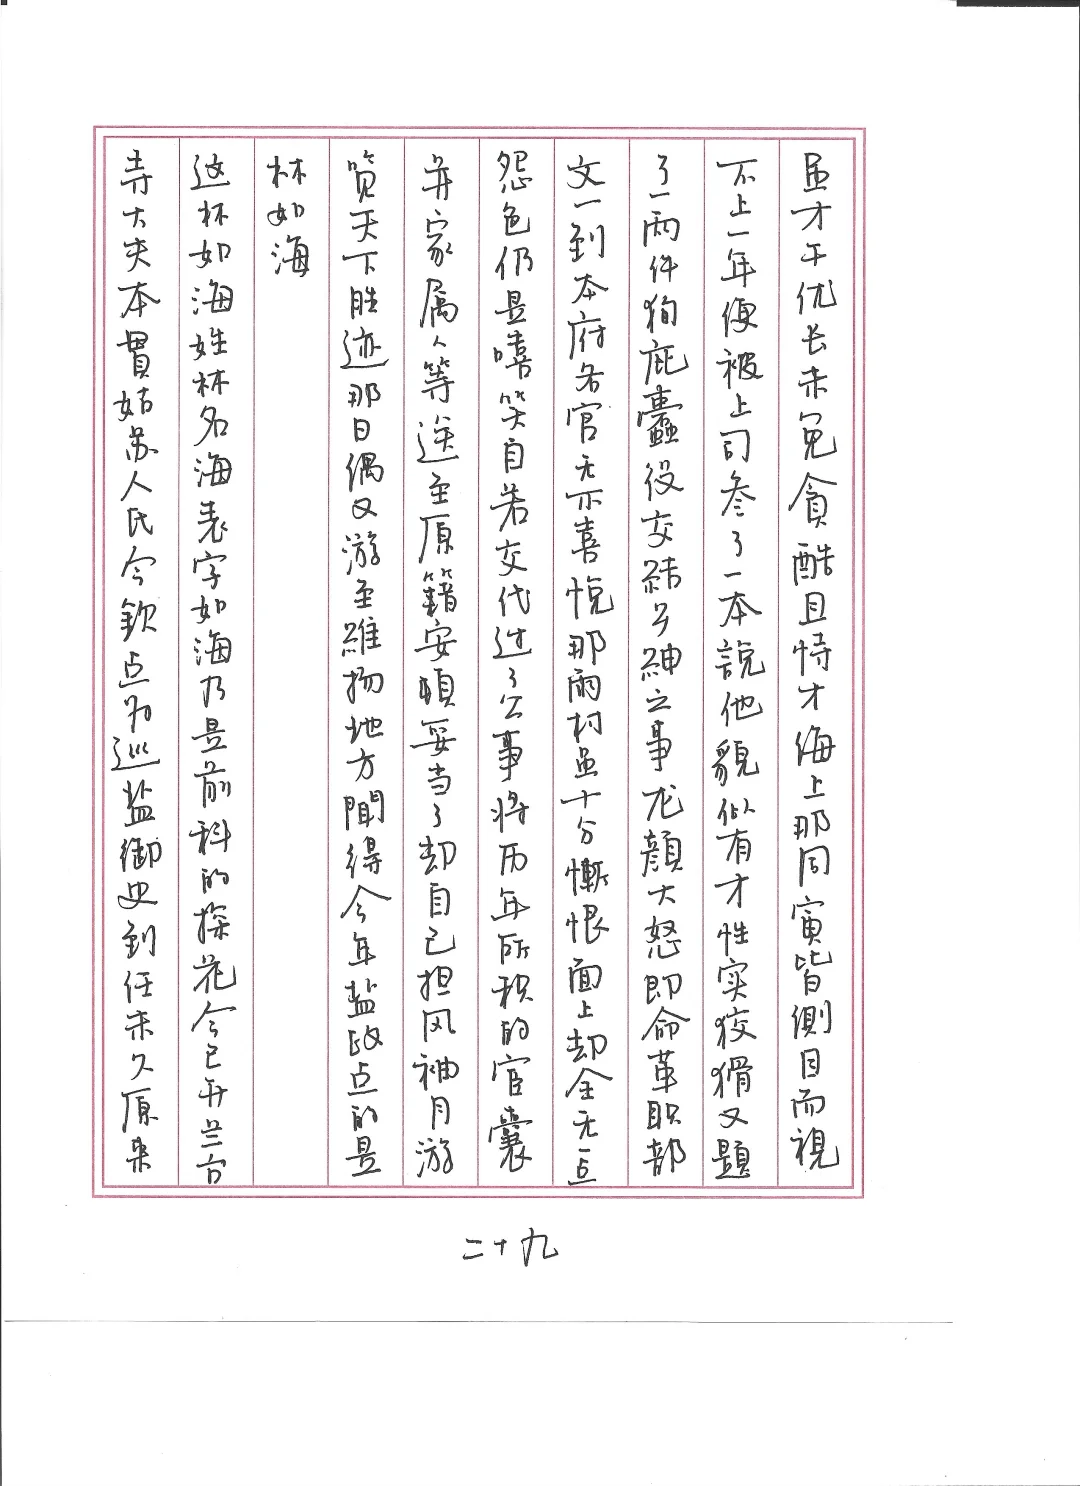 虽才干优长未免貪酷且恃才侮上那同寅皆側目而視
不上一年便被上司参了一本説他貌似有才性实狡猾又題
了一兩件狥庇蠹役交結乡紳之事龙顔大怒即命革职部
文一到本府各官无不喜悦那雨村虽十分慚恨面上却全无一点
怨色仍是嘻笑自若交代过了公事将历年所积的宦囊
并家属人等送至原籍安頓妥当了却自己担风袖月游
覽天下胜迹那日偶又游至維扬地方聞得今年盐政点的是
林如海
这林如海姓林名海表字如海乃是前科的探花今已升兰台
寺大夫本貫姑苏人氏今欽点为巡盐御史到任未久原来
二十九